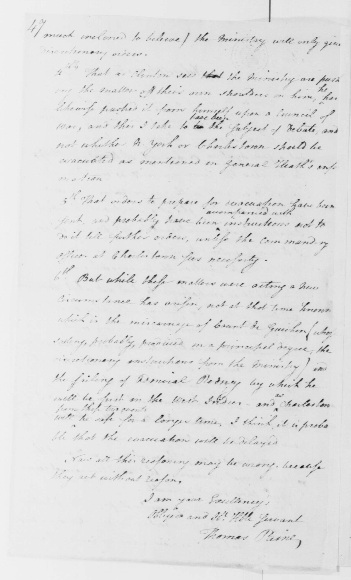 47
much inclined to believe) the Ministry will only give
discretionary orders.
4th That as Clinton said that the Ministry are push
ing the matter off their own shoulders on him, he has
likewise pushed it from himself upon a Council of
War, and this I take to have been the subject of debate, and
not whether N York or Charlestown should be
evacuated as mentioned in General Heath's infor
mation
5th That orders to prepare for evacuation have been
sent and probably have been accompanied with instructions not to
quit till further orders, unless the commanding
officer at Charlestown sees necessity.
6th But while these matters were acting a new
circumstance has arisen, not at that time known
which is the miscarriage of Count de Guichen (whose
sailing, probably, promised in a principal degree, the
discretionary instructions from the Ministry) and
the sailing of Admiral Rodney by which he
will be first in the West Indies - and as Charleston
from these two events
will be safe for a longer time, I think it is proba
ble that the evacuation will be delayed
And all this reasoning may be wrong, because
they act without reason.
I am your Excellency's
Obliged and Ob. Hble Servant
Thomas Paine